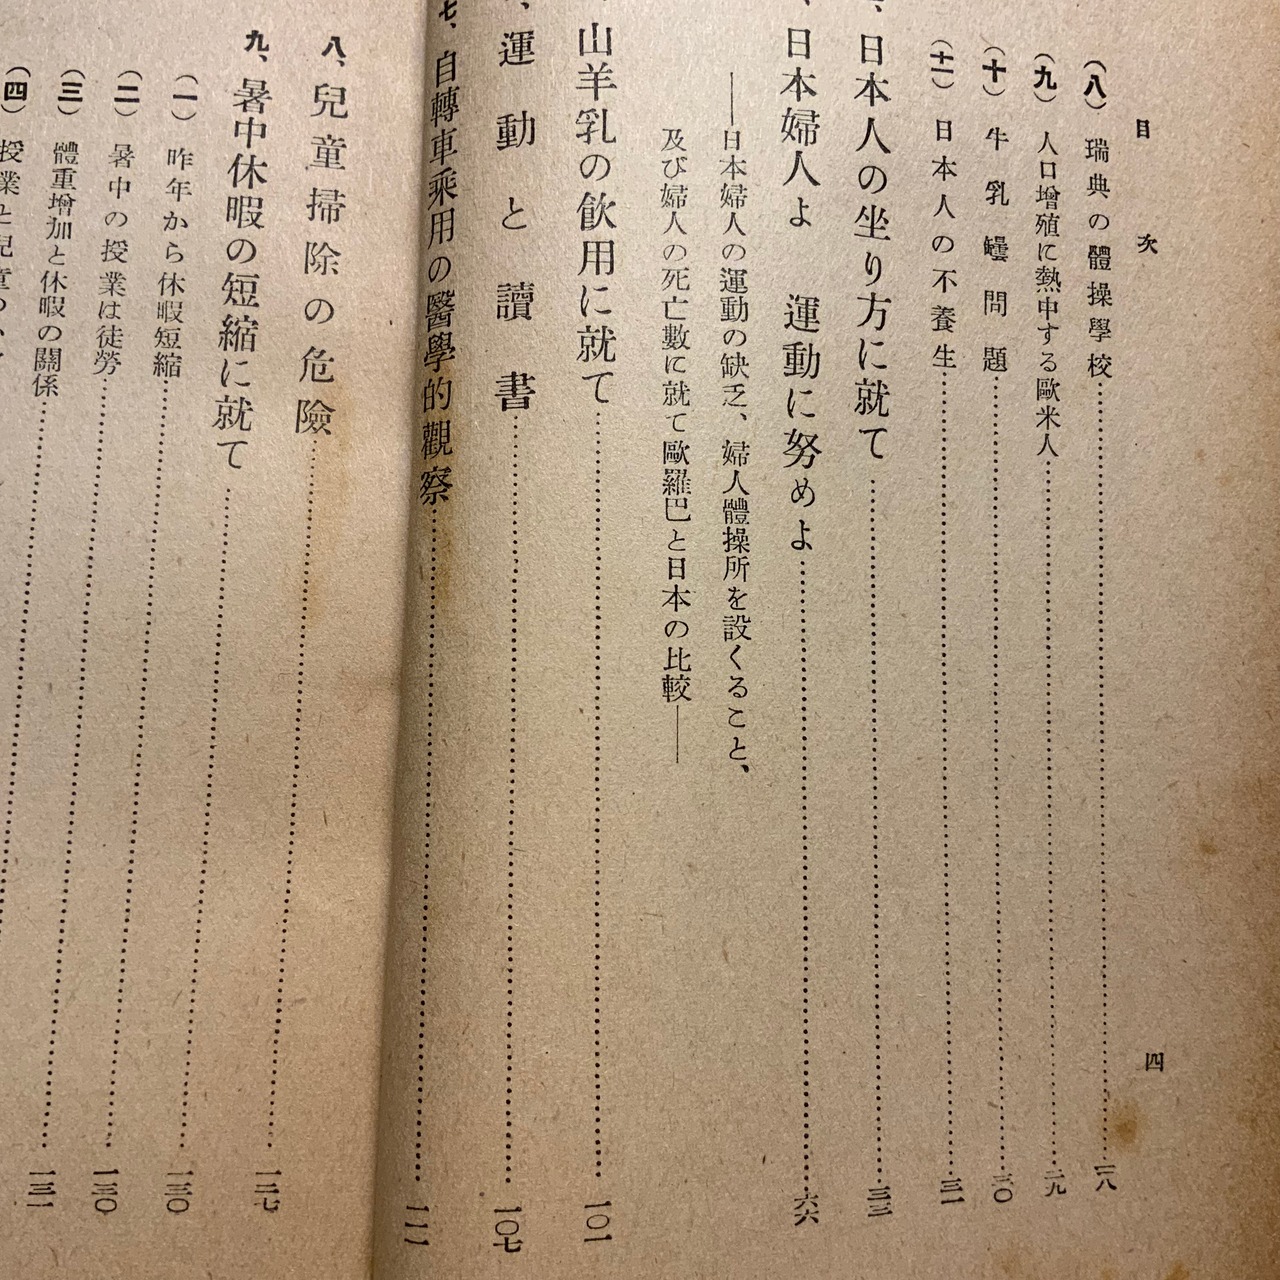 目次 四
(八) 瑞典の體操學校……二八
(九) 人口增殖に熱中する歐米人……二九
(十) 牛乳罎問題……三〇
(十一) 日本人の不養生……三一
、日本人の坐り方に就て……三三
、日本婦人よ 運動に努めよ……六六
――日本婦人の運動の缺乏、婦人體操所を設くること、
及び婦人の死亡數に就て歐羅巴と日本の比較――
、山羊乳の飮用に就て……一〇一
、運動と讀書……一〇七
七、自轉車乘用の醫學的觀察……一一一
八、兒童掃除の危險……一二七
九、暑中休暇の短縮に就て
(一) 昨年から休暇短縮……一三〇
(二) 暑中の授業は徒勞……一三〇
(三) 體重增加と休暇の關係……一三一
(四) 授業と兒童の